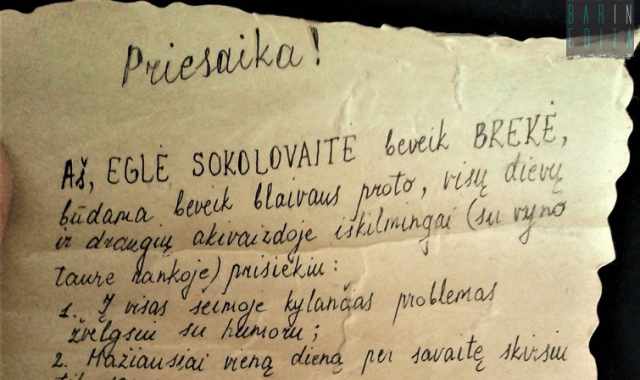 BARIN
EDITA
Priesaika!
Aš, EGLĖ SOKOLOVAITĖ beveik BREKĖ,
būdama beveik blaivaus proto, visų dievų
ir draugių akivaizdoje iškilmingai (su vyno
taure rankoje) prisiekiu:
1. Į visas šeimoje kylančias problemas
žvelgsiu su humoru;
2. Mažiausiai vieną dieną per savaitę skirsiu